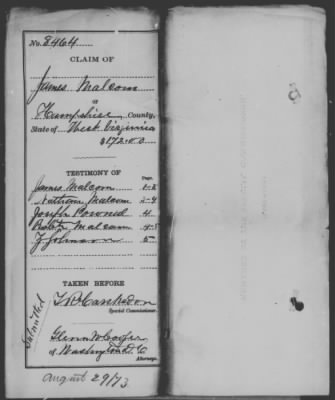 No. 8464
CLAIM OF
James Malcom
OF
Hampshire County,
State of West Virginia
$172.00
TESTIMONY OF
Page.
James Malcom 1-2
Nathan Malcom
Joseph 4
Malcom 4-5
J Johnson 5
TAKEN BEFORE
Special Commissioner.
Submitted
Glenn W Cooper
of Washington D.C.
Attorney.
August 29/73